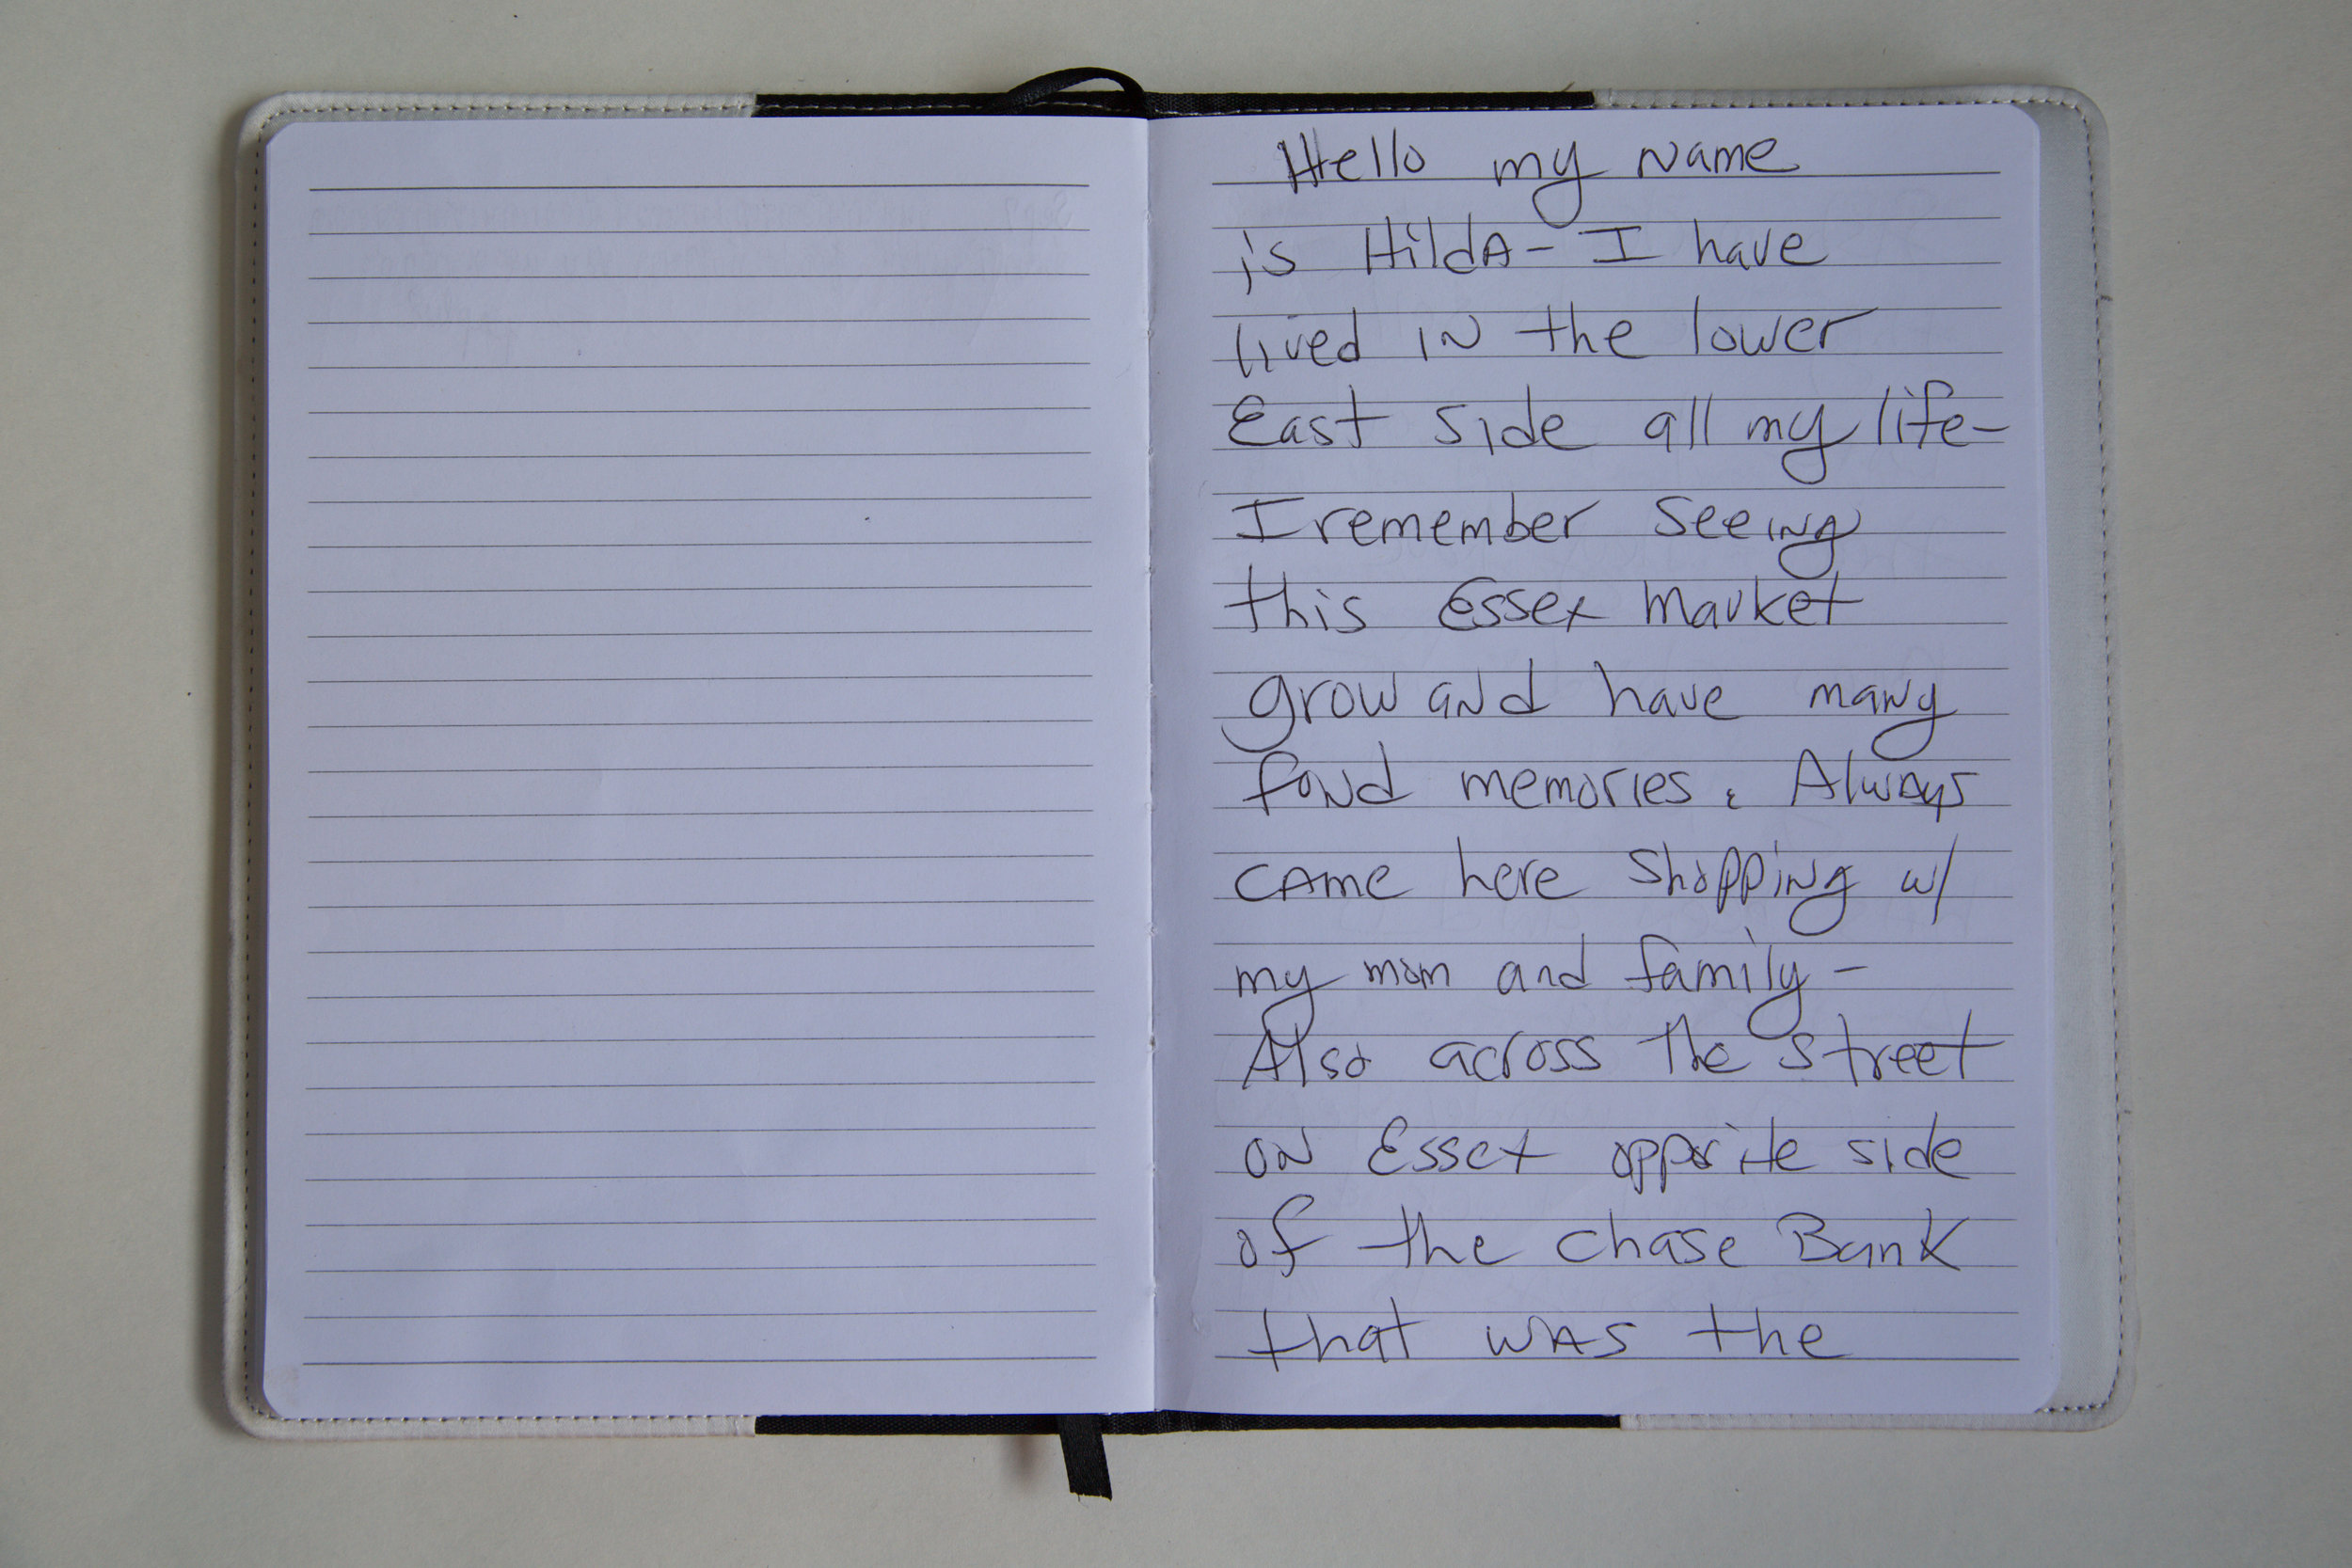 Hello my name
is HildA - I have
lived IN the lower
East Side all my life -
I remember seeing
this Essex Market
grow and have many
fond memories. Always
CAme here shopping w/
my mom and family -
Also across the street
on Essex opposite side
of the chase Bank
that WAS the